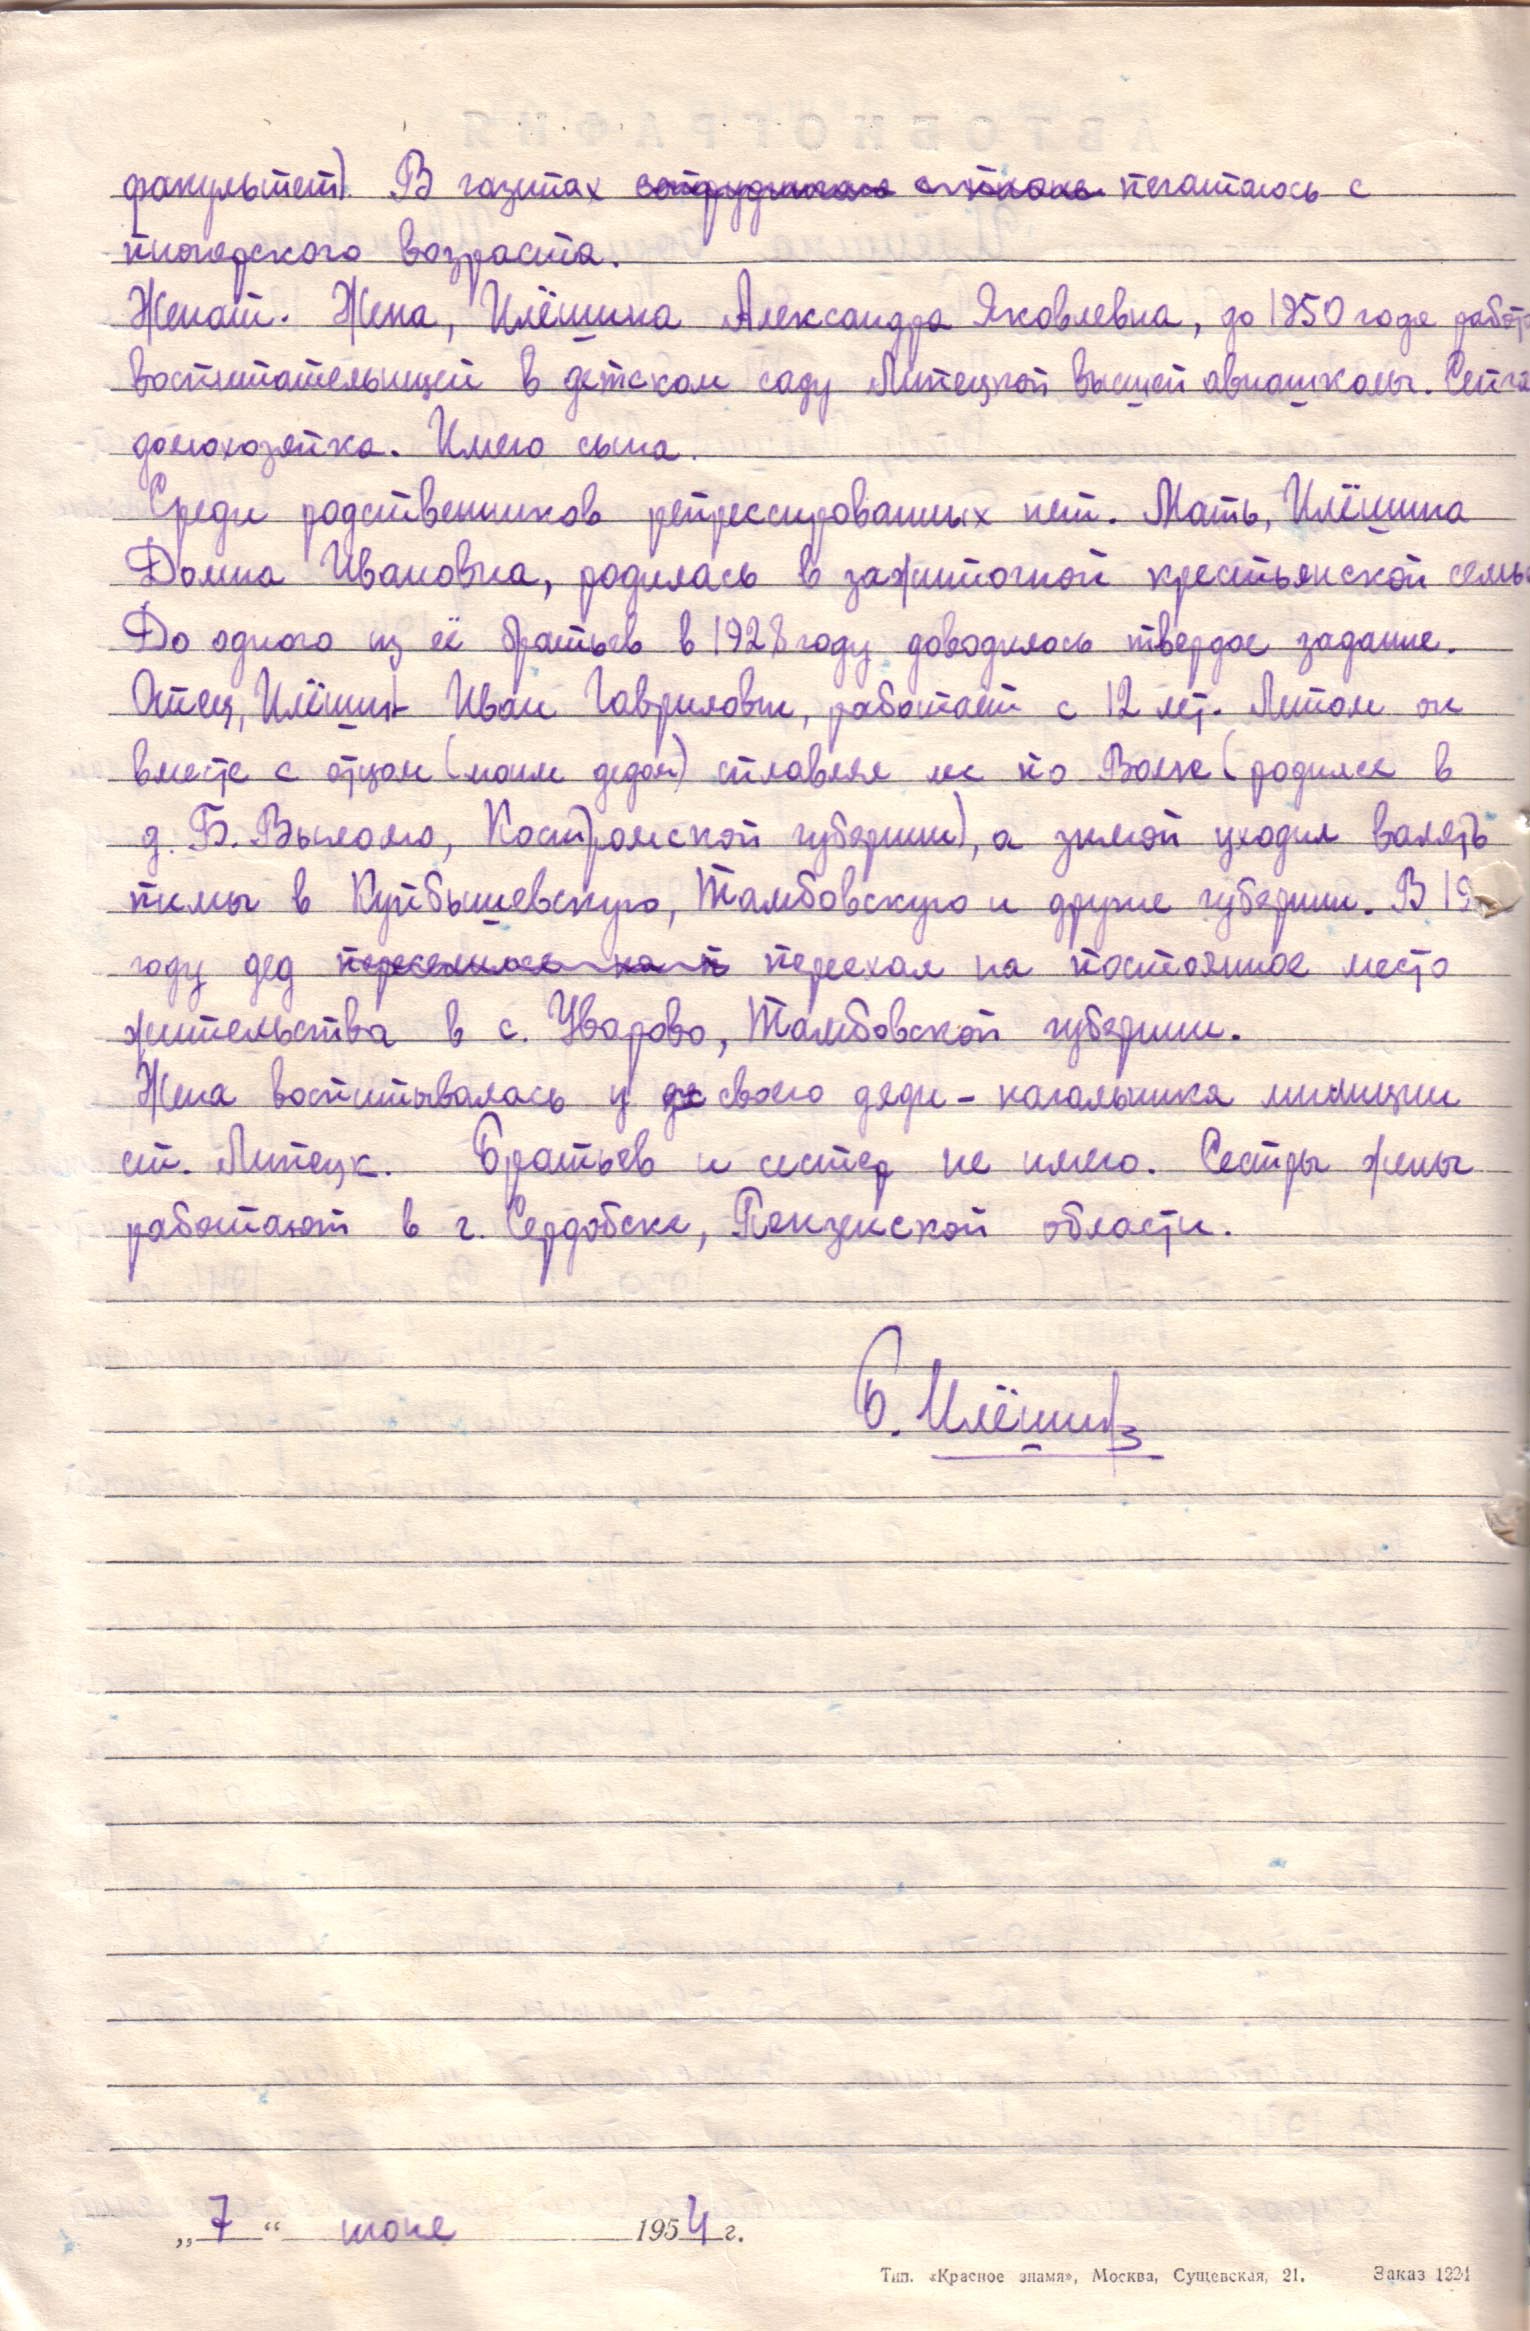 факультет). В газетах печатаюсь с
пионерского возраста.
Женат. Жена, Илёшина Александра Яковлевна, до 1950 года работ
воспитательницей в детском саду Липецкой высшей авиашколы. Сейча
домохозяйка. Имею сына.
Среди родственников репрессированных нет. Мать, Илёшина
Домна Ивановна, родилась в зажиточной крестьянской семье
До одного из её братьев в 1928 году доводилось твердое задание.
Отец, Илёшин Иван Гаврилович, работает с 12 лет. Летом он
вместе с отцом (моим дедом) сплавлял лес по Волге (родился в
д. Б. Вылово, Костромской губернии), а зимой уходил валять
пимы в Куйбышевскую, Тамбовскую и другие губернии. В 19
году дед переселился на п переехал на постоянное место
жительства в с. Уварово, Тамбовской губернии.
Жена воспитывалась у дя своего дяди - начальника милиции
ст. Липецк. Братьев и сестер не имею. Сестры жены
работают в г. Сердобске, Пензенской области.
Б. Илёшин
„7“ июня 1954 г.
Тип. «Красное знамя», Москва, Сущевская, 21. Заказ 1224